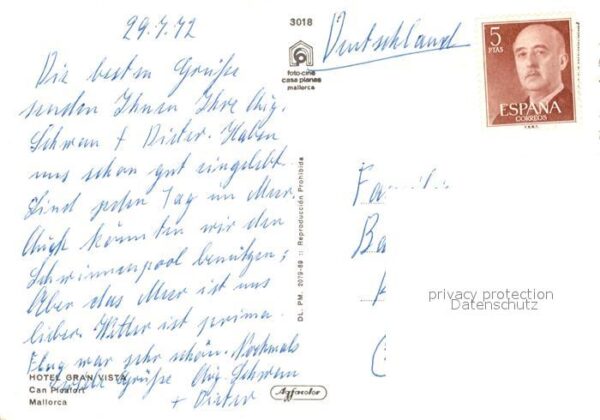 29.7.72
Die besten Grüße
senden Ihnen Ihre Aug.
Schwan + Dieter. Haben
uns schon gut eingelebt.
Sind jeden Tag im Meer.
Auch könnten wir den
Schwimmenpool benützen;
Aber das Meer ist uns
lieber. Wetter ist prima.
Flug war sehr schön. Nochmals
Grüße Aug. Schwan
+ Dieter
HOTEL GRAN VISTA
Can Picafort
Mallorca
3018
foto-cine
casa planas
mallorca
DL. PM. 2079-69 :: Reproducción Prohibida
Agfacolor
Deutschland
5
PTAS
ESPAÑA
CORREOS
Fa
Ba
privacy protection
Datenschutz